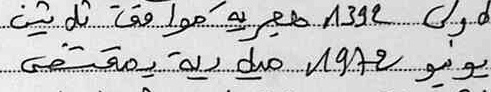 لاولى 1392 هجرية موافق ثلاثين
يونيو 1972 ميلادية بمقتضى